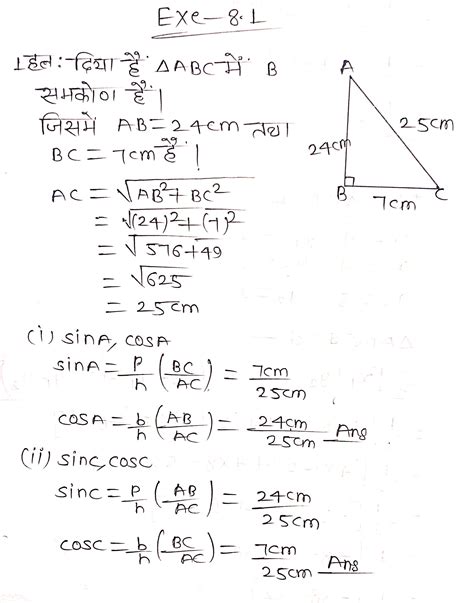 Exe-8.1
1हल: दिया है ΔABC में B
समकोण है।
जिसमें AB=24cm तथा
BC=7cm है।
A
24cm
25cm
B
7cm
C
AC = √AB²+BC²
= √(24)²+(7)²
= √576+49
= √625
= 25cm
(i) sinA, cosA
sinA = P/h (BC/AC) = 7cm/25cm
cosA = b/h (AB/AC) = 24cm/25cm Ans
(ii) sinc, cosc
sinc = P/h (AB/AC) = 24cm/25cm
cosc = b/h (BC/AC) = 7cm/25cm Ans